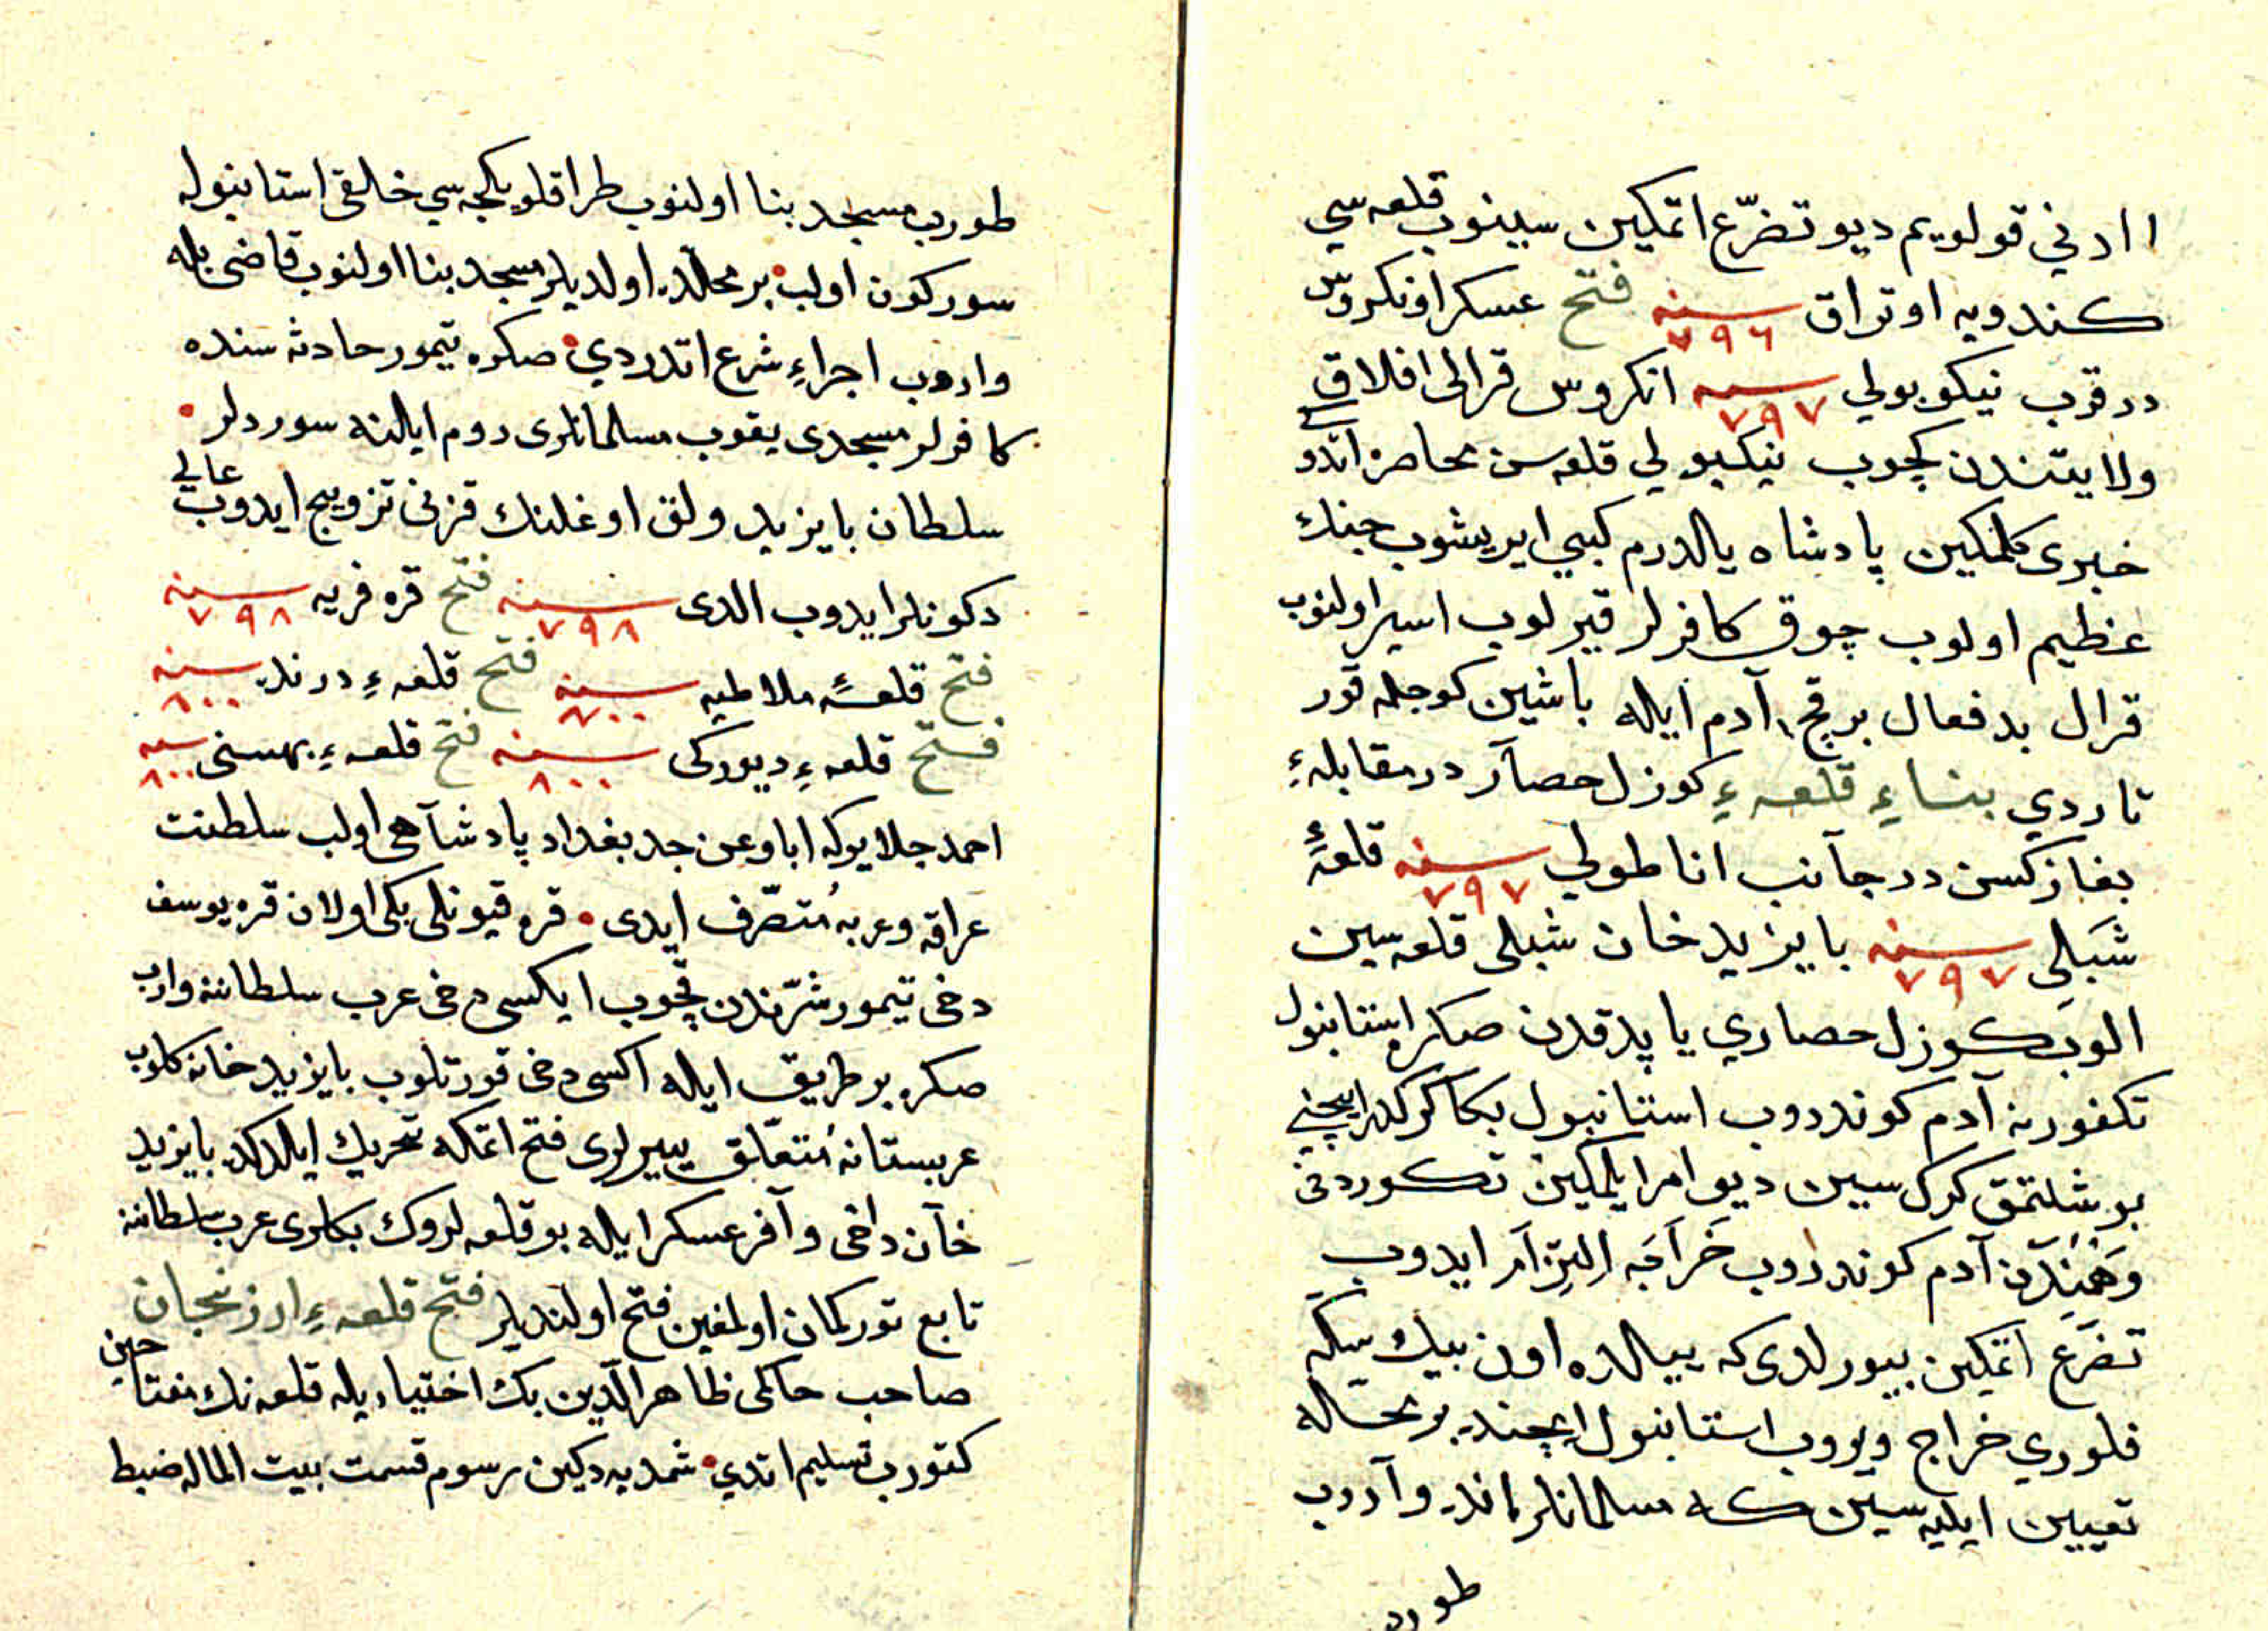 ادني قولويم ديو تضرّع اتمكين سينوب قلعه سي
كندويه اوتراق سنه ٧٩٦ فتح عسكر اونكروس
در قرب نيكوبولي سنه ٧٩٧ انكروس قرالى افلاق
ولايتندن كچوب نيكبولي قلعه سن محاصره اتدو
خبرى كلمكين پادشاه يالدرم كبي ايريشوب جنك
عظيم اولوب چوق كافرلر قيرلوب اسير اولنوب
قرال بدفعال بر قچ آدم ايله باشين كوجله قور
تاردي بناءِ قلعهءِ كوزل حصآر در مقابلهءِ
بغازكسن در جآنب اناطولي سنه ٧٩٧ قلعهءِ
شبلى سنه ٧٩٧ بايزيد خان شبلى قلعه سين
الوب كوزل حصاري ياپدقدن صكره استانبول
تكفورنه آدم كوندروب استانبول بكا كركدر ايچني
بوشلتمق كرك سين ديو امر ايلمكين تكور دخى
وهمندن آدم كوندروب خراجه التزام ايدوب
تضرّع اتمكين بيورلدى كه ييلده اون بيك سكه
فلوري خراج ويروب استانبول ايچنده بر محله
تعيين ايليه سين كه مسلمانلر انده وآروب
طورب
طورب مسجد بنا اولنوب طراقلو يكجه سي خالقى استانبوله
سوركون اولب بر محلّده اولديلر مسجد بنا اولنوب قاضى بله
واروب اجراءِ شرع اتدردي صكره تيمور حادثه سنده
كافرلر مسجدى يقوب مسلمانلرى روم ايالنه سوردلر
سلطان بايزيد ولق اوغلنك قزنى تزويج ايدوب عالي
دكونلر ايدوب الدى سنه ٧٩٨ فتح قره فريه سنه ٧٩٨
فتح قلعهءِ ملاطيه سنه ٨٠٠ فتح قلعهءِ درنده سنه ٨٠٠
فتح قلعهءِ ديوركى سنه ٨٠٠ فتح قلعهءِ بهسنى سنه ٨٠٠
احمد جلاير كه ابا وعن جد بغداد پادشآهى اولب سلطنت
عراقه وعربه مُتصّرف ايدى قره قيونلى بكى اولان قره يوسف
دخى تيمور شرّندن قچوب ايكسى دخى عرب سلطاننه وارب
صكره بر طريق ايله اكسى دخى قورتلوب بايزيد خانه كلوب
عربستانه مُتعّلق ييرلرى فتح اتمكه تحريك ايلدكده بايزيد
خآن داخى وآفر عسكر ايله بو قلعه لروك بكلرى عرب سلطاننه
تابع توركمان اولمغين فتح اولنديلر فتح قلعهءِ ارزنجان
صاحب حاكمى ظاهر الدّين بك اختياريله قلعه نك مفتاحين
كتورب تسليم اتدي شمديه دكين رسوم قسمت بيت الماله ضبط